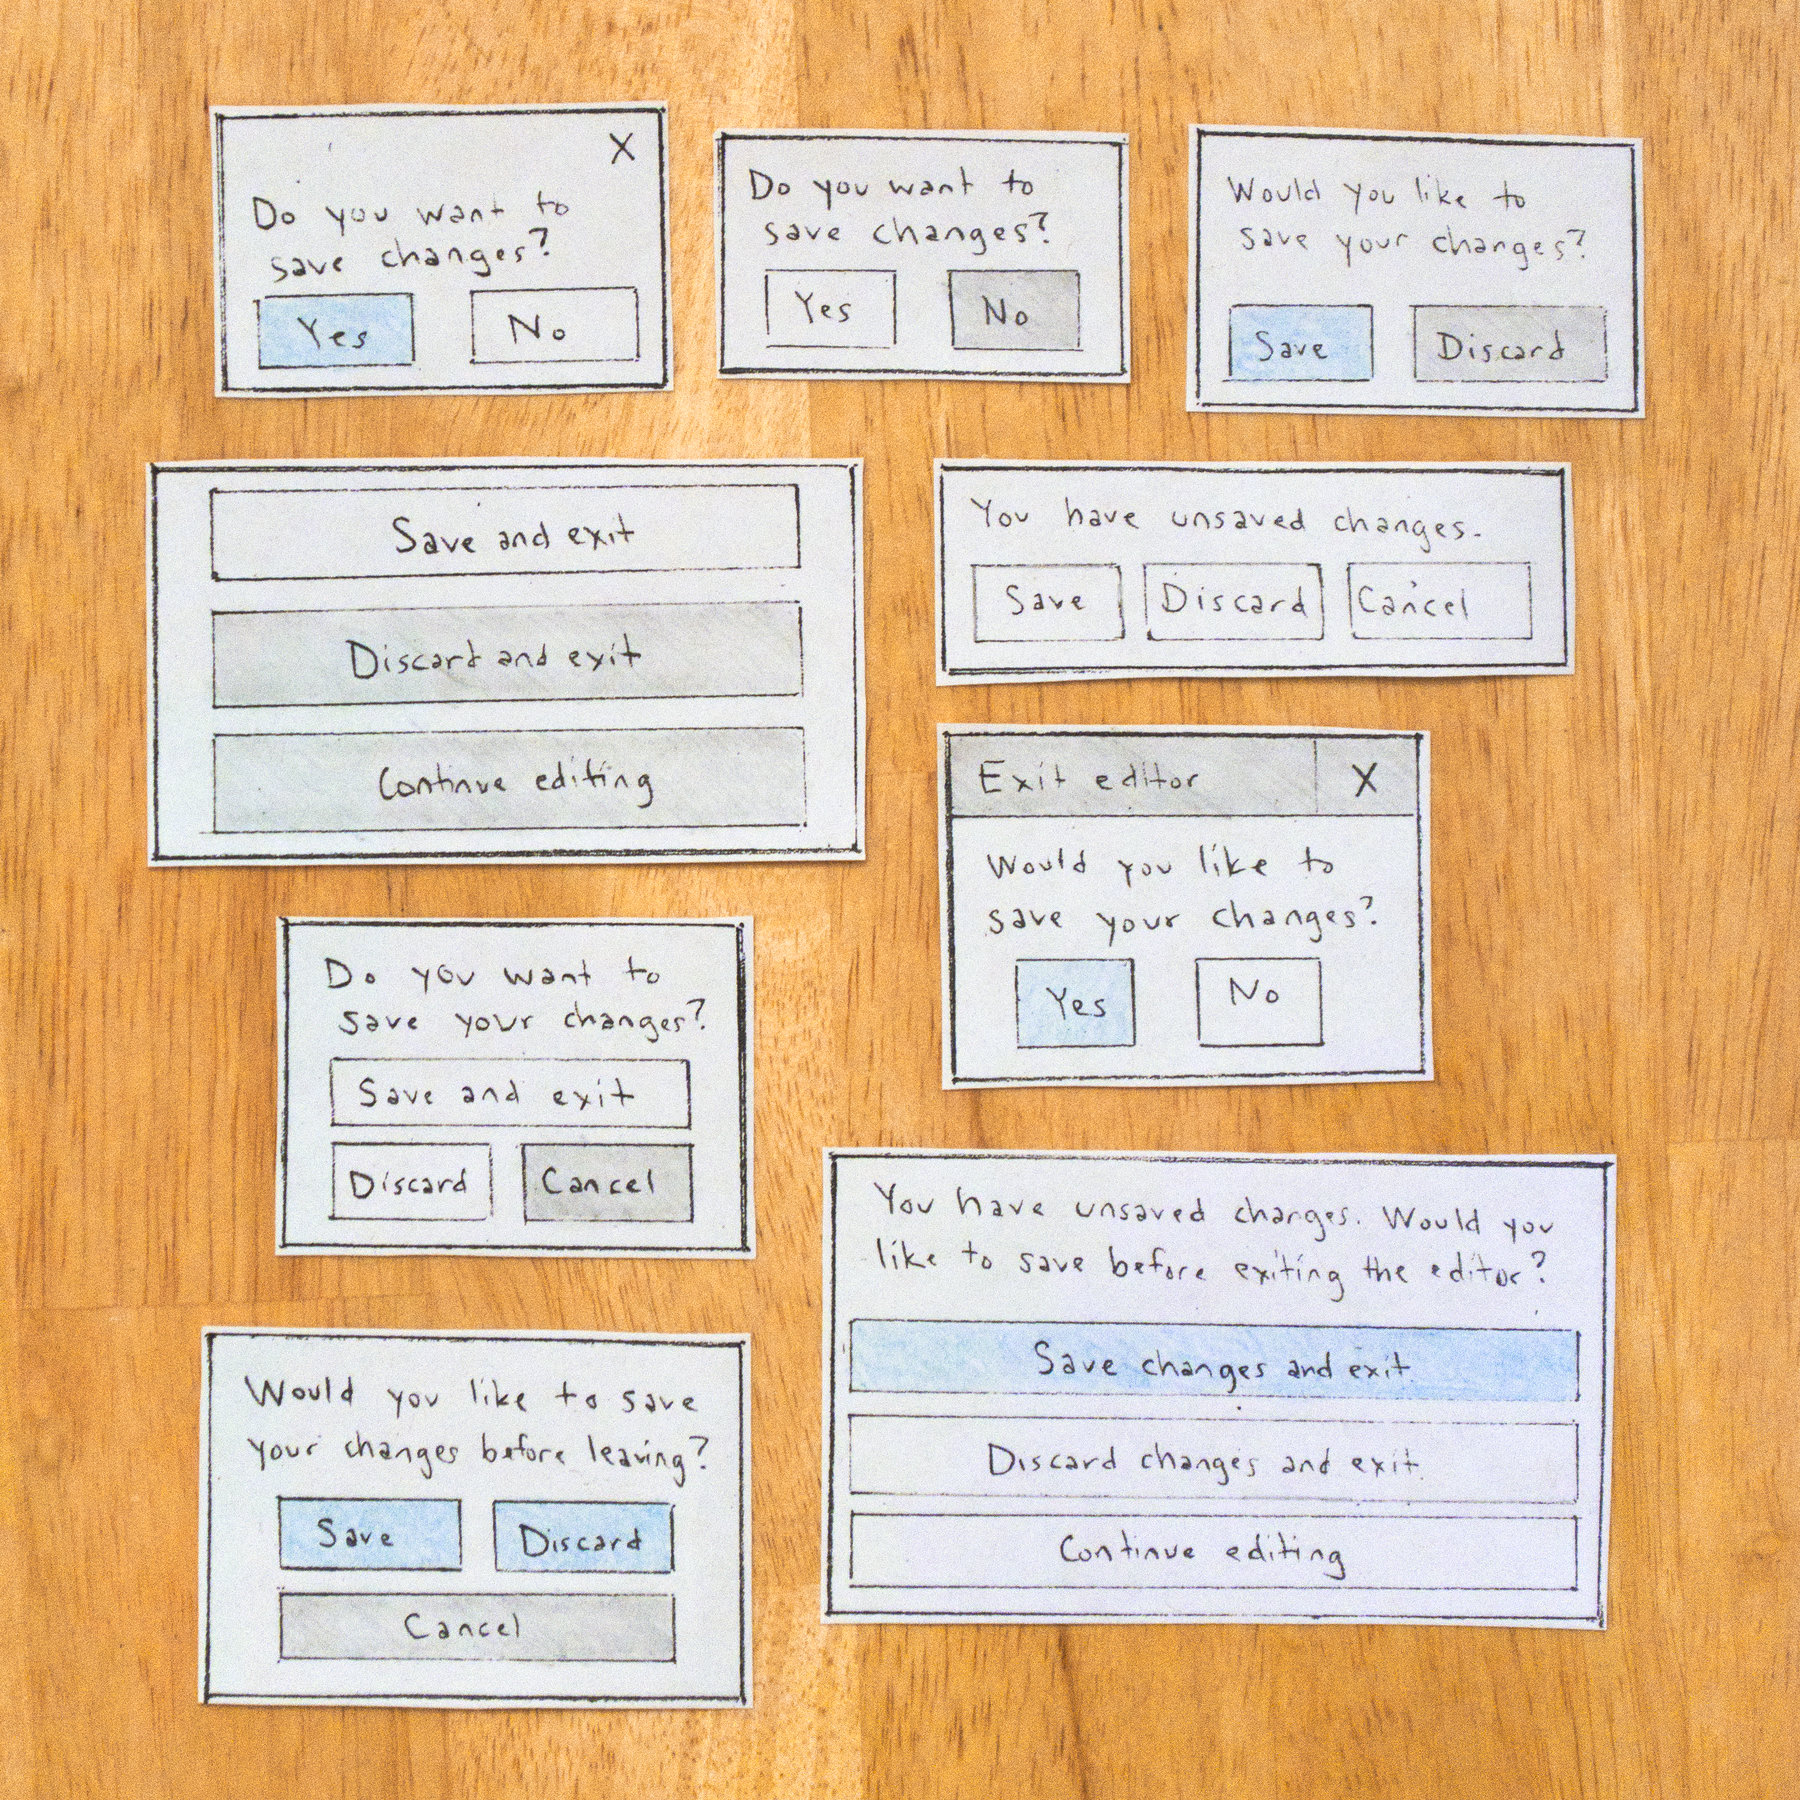 X
Do you want to
save changes?
Yes
No
Do you want to
save changes?
Yes
No
Would you like to
save your changes?
Save
Discard
Save and exit
Discard and exit
Continue editing
You have unsaved changes.
Save
Discard
Cancel
Exit editor
X
Would you like to
save your changes?
Yes
No
Do you want to
save your changes?
Save and exit
Discard
Cancel
You have unsaved changes. Would you
like to save before exiting the editor?
Save changes and exit
Discard changes and exit
Continue editing
Would you like to save
your changes before leaving?
Save
Discard
Cancel